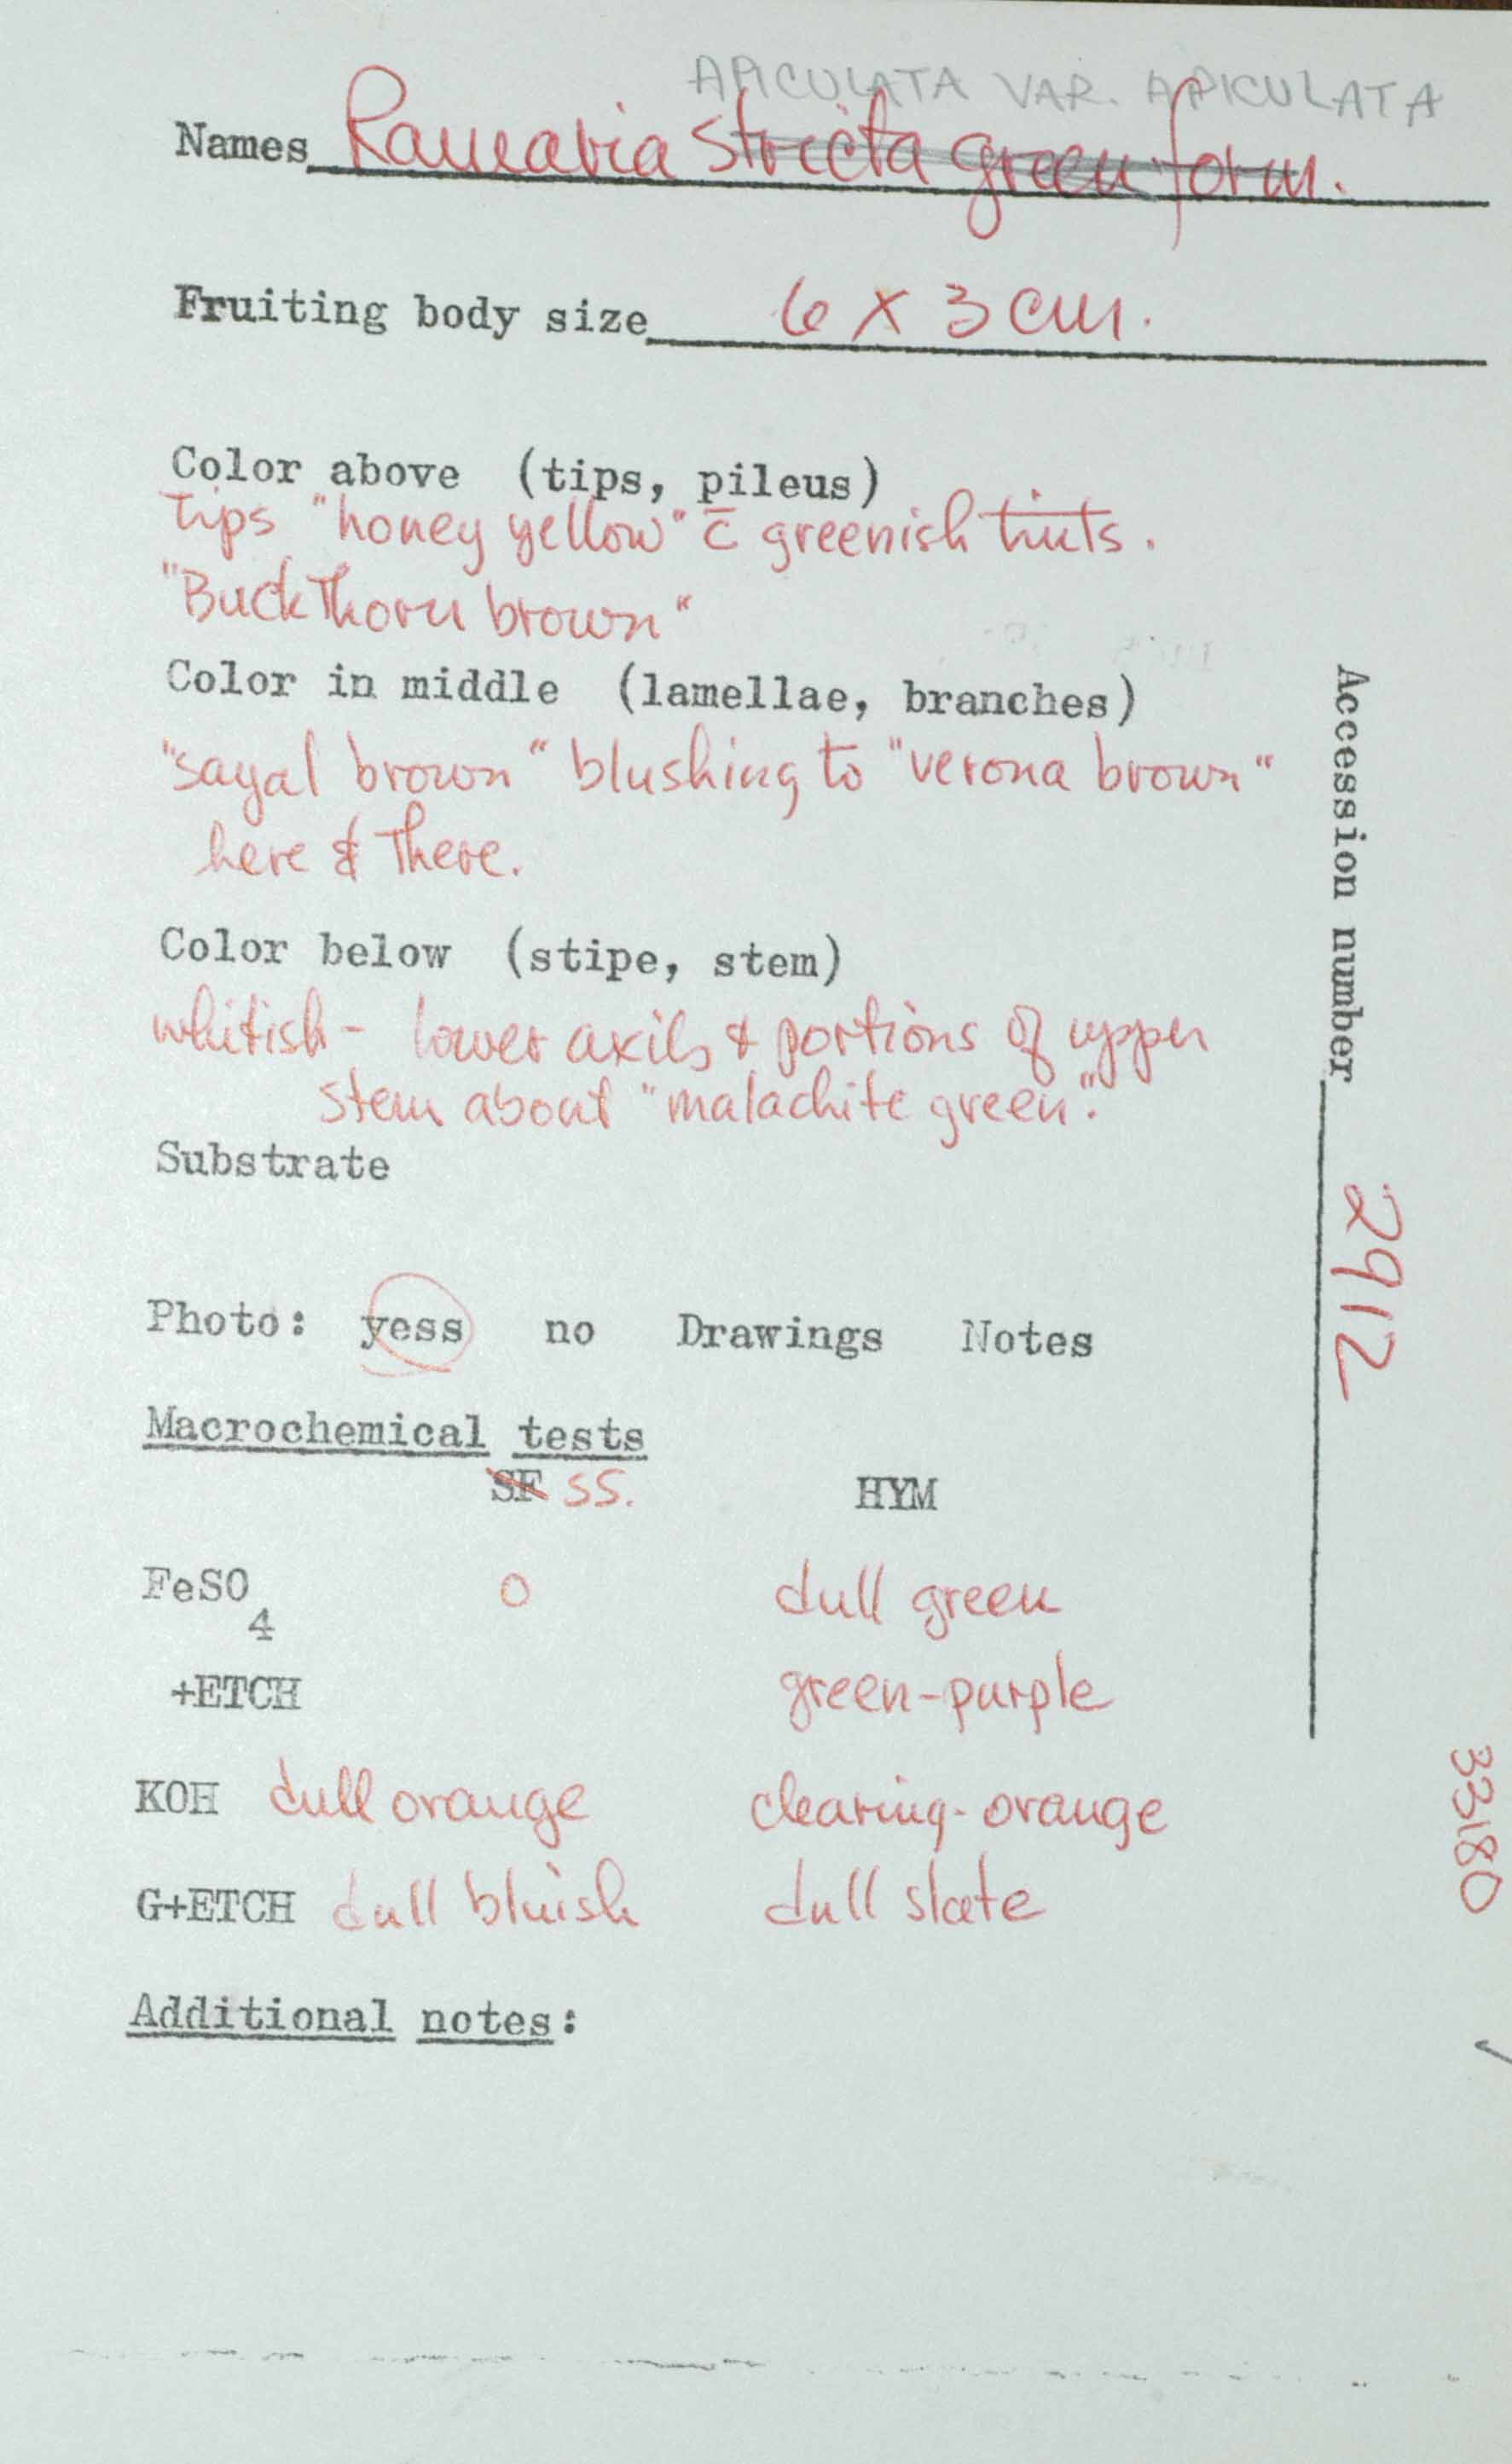 APICULATA VAR. APICULATA
Names Ramaria stricta green form.
Fruiting body size 6 x 3 cm.
Color above (tips, pileus)
tips "honey yellow" c̄ greenish tints.
"Buckthorn brown"
Color in middle (lamellae, branches)
"sayal brown" blushing to "verona brown"
here & there.
Color below (stipe, stem)
whitish - lower axils & portions of upper
stem about "malachite green".
Substrate
Photo: yess no Drawings Notes
Macrochemical tests
SF SS. HYM
FeSO4 0 dull green
+ETCH green-purple
KOH dull orange clearing-orange
G+ETCH dull bluish dull slate
Additional notes:
Accession number 2912
33180